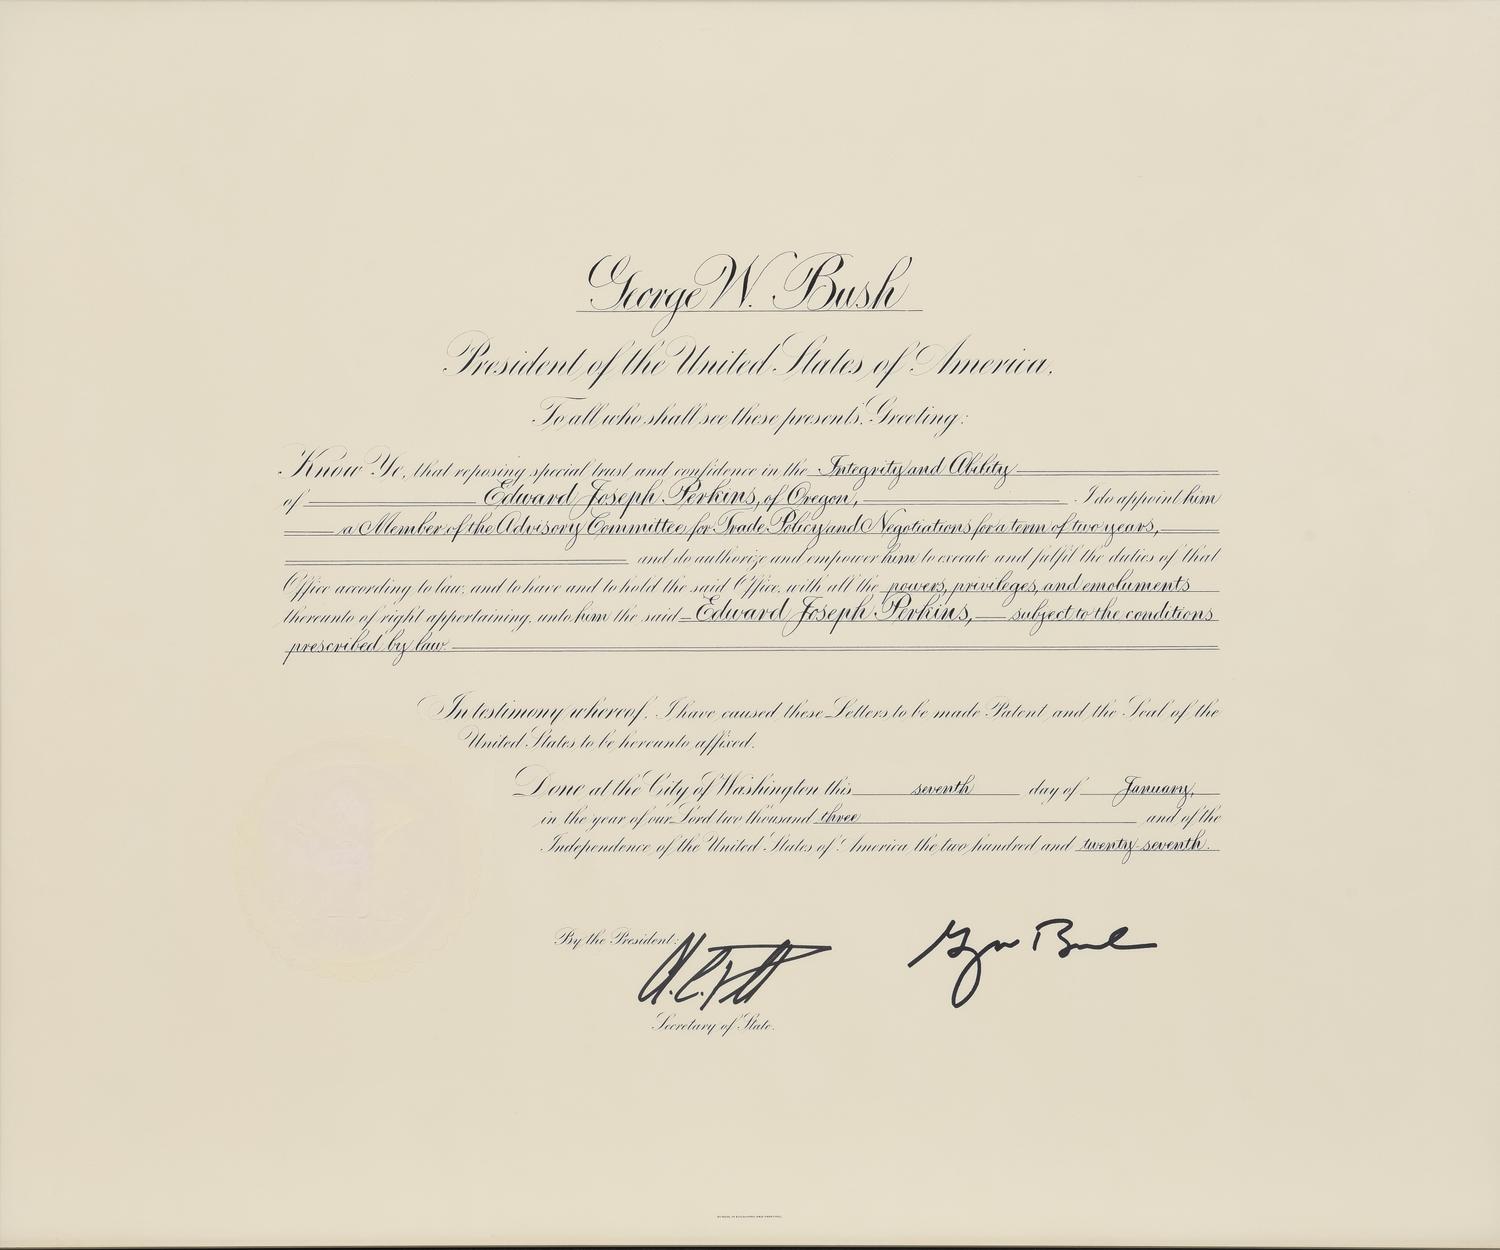 George W. Bush
President of the United States of America.
To all who shall see these presents, Greeting:
Know Ye, that reposing special trust and confidence in the Integrity and Ability
of Edward Joseph Perkins, of Oregon, I do appoint him
a Member of the Advisory Committee for Trade Policy and Negotiations for a term of two years,
and do authorize and empower him to execute and fulfil the duties of that
Office according to law, and to have and to hold the said Office, with all the powers, privileges, and emoluments
thereunto of right appertaining, unto him the said Edward Joseph Perkins, subject to the conditions
prescribed by law.
In testimony whereof, I have caused these Letters to be made Patent and the Seal of the
United States to be hereunto affixed.
Done at the City of Washington this seventh day of January,
in the year of our Lord two thousand three and of the
Independence of the United States of America the two hundred and twenty-seventh.
By the President:
George Bush
Secretary of State.
BUREAU OF ENGRAVING AND PRINTING